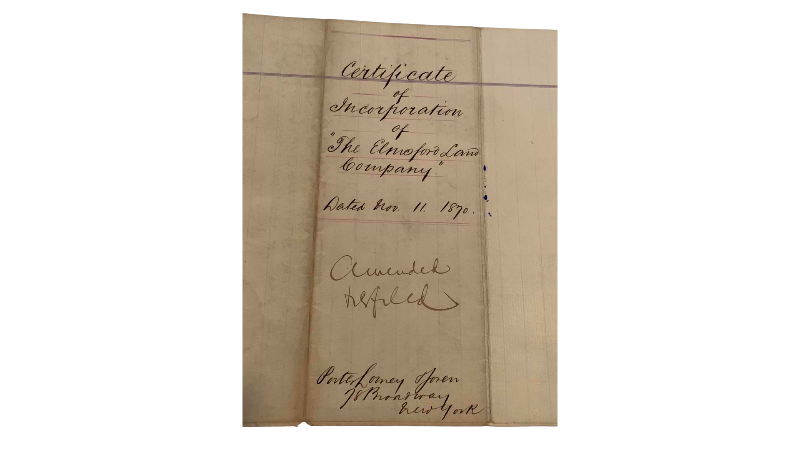 Certificate
of
Incorporation
of
"The Elmsford Land
Company."
Dated Nov. 11. 1870.
Amended
Porter
78 Broadway
New York